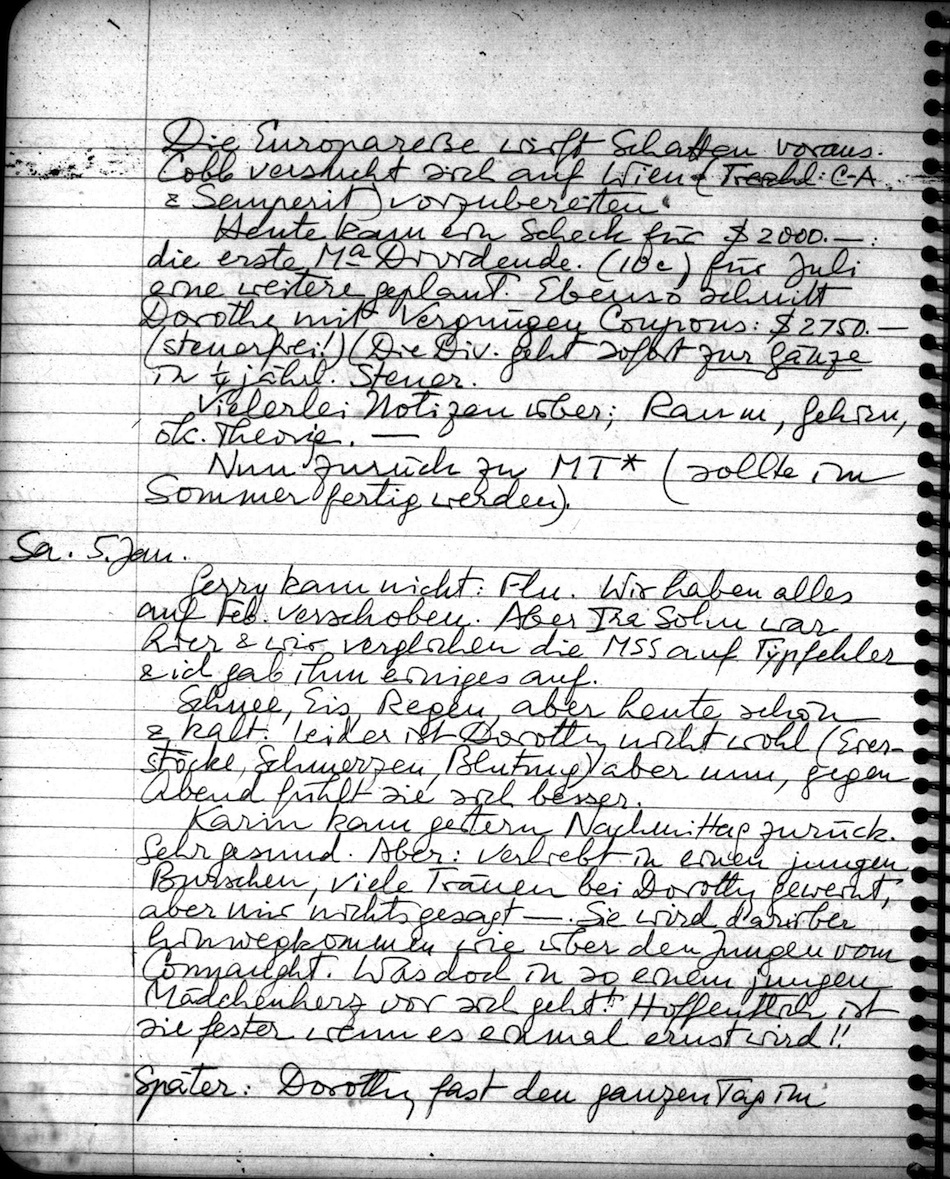 Die Europareise wirft Schatten voraus.
Cobb versucht sich auf Wien (Treichl: C-A
& Semperit) vorzubereiten.
Heute kam ein Scheck für $2000.—:
die erste Ma Dividende. (10c) für Juli
eine weitere geplant. Ebenso schnitt
Dorothy mit Vergnügen Coupons: $2750.—
(steuerfrei!) (Die Div. geht sofort zur Gänze
in ¼ jährl. Steuer.
Vielerlei Notizen über; Raum, Gehirn,
ök. Theorie. —
Nun zurück zu MT* (sollte im
Sommer fertig werden).
Sa. 5. Jan.
Perry kam nicht: Flu. Wir haben alles
auf Feb. verschoben. Aber Ira Sohn war
hier & wir verglichen die MSS auf Typfehler
& ich gab ihm einiges auf.
Schnee, Eis, Regen, aber heute schön
& kalt. Leider ist Dorothy nicht wohl (Eier-
stöcke, Schmerzen, Blutung) aber nun, gegen
Abend fühlt sie sich besser.
Karin kam gestern Nachmittag zurück.
Sehr gesund. Aber: verliebt in einen jungen
Burschen, viele Tränen bei Dorothy geweint,
aber mir nichts gesagt —. Sie wird darüber
hinwegkommen wie über den Jungen vom
Connaught. Was doch in so einem jungen
Mädchenherz vor sich geht!! Hoffentlich ist
sie fester wenn es einmal ernst wird!!
Später: Dorothy fast den ganzen Tag im